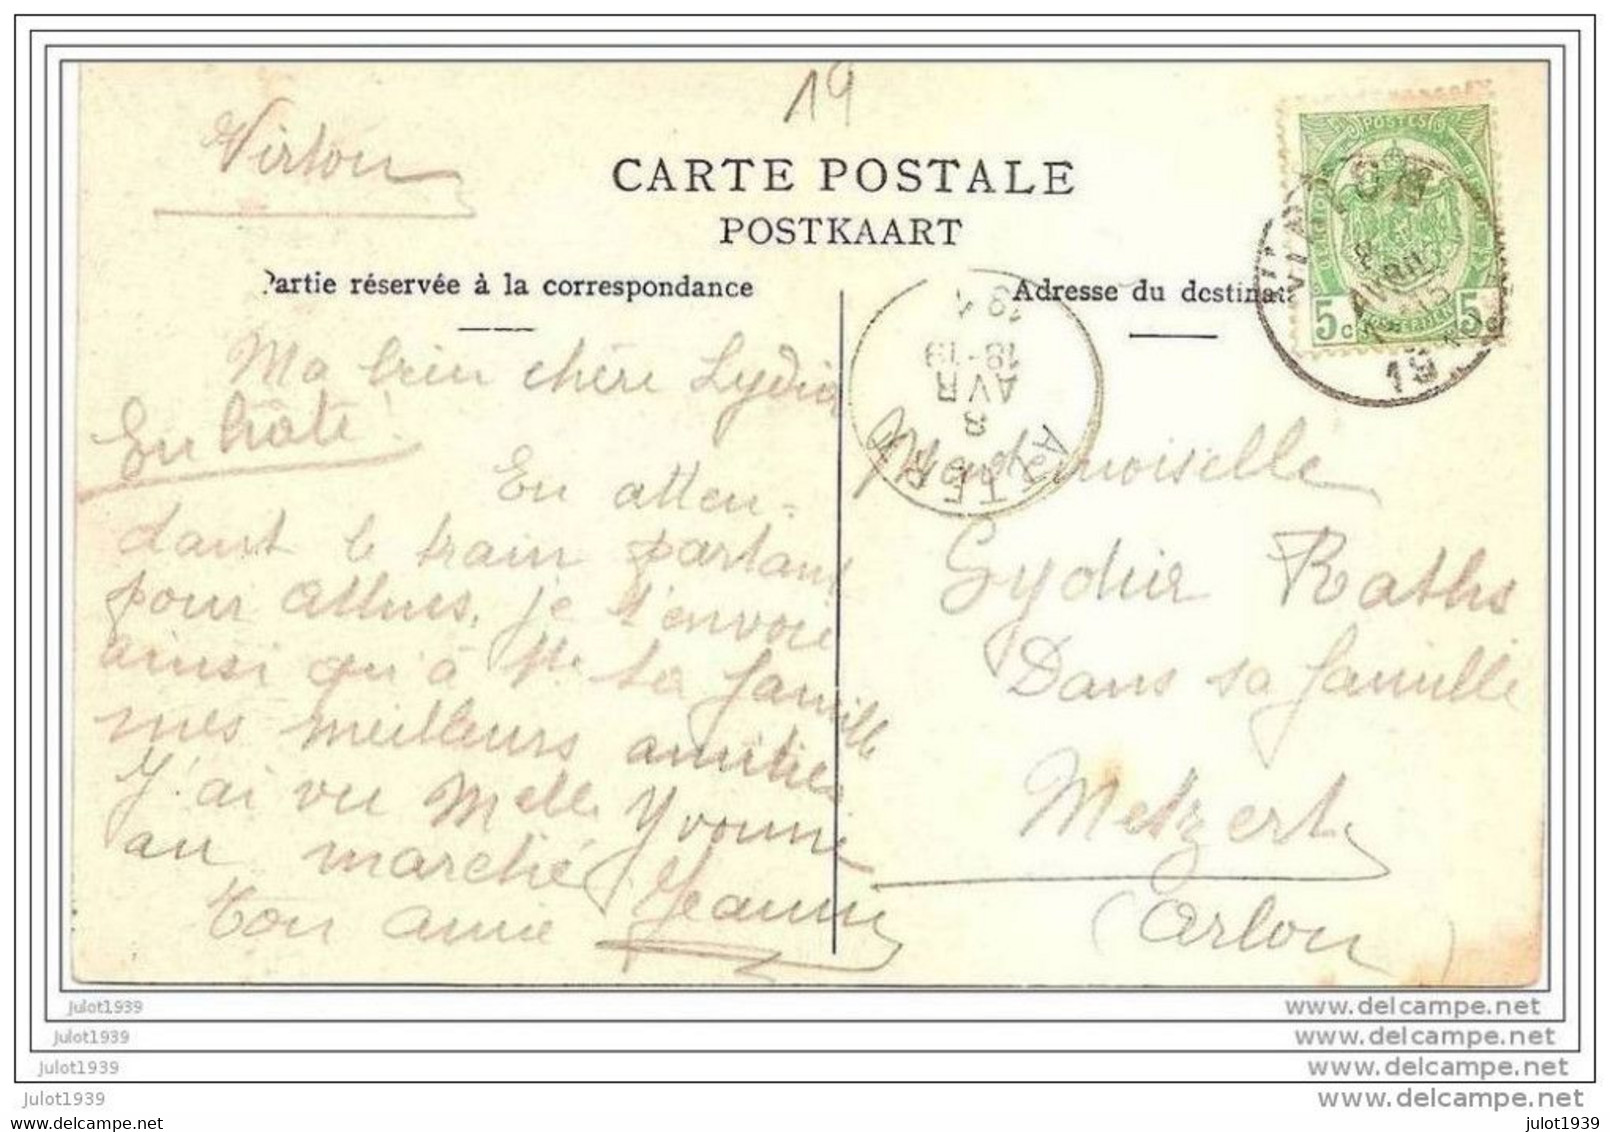 19
Virton
CARTE POSTALE
POSTKAART
Partie réservée à la correspondance
Adresse du destinat
POSTES
5 c 5 c
VIRTON
8
AVRIL
15
19
ATTERT
8
AVR
18-19
191
Ma bien chère Lydia
En hâte!
En atten-
dant le train partant
pour Athus, je t'envoie
ainsi qu'à Tte ta famille
mes meilleurs amitiés
J'ai vu Melle Yvonne
au marché
Ton amie Jeanne
Mademoiselle
Lydie Raths
Dans sa famille
Metzert
(Arlon)
julot1939
www.delcampe.net
julot1939
www.delcampe.net
julot1939
www.delcampe.net
julot1939
www.delcampe.net
julot1939
julot1939